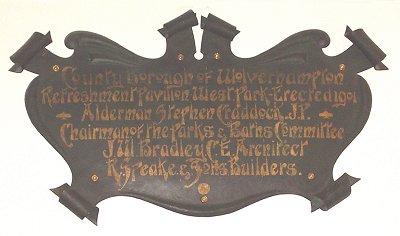 County Borough of Wolverhampton
Refreshment Pavilion West Park-Erected 1901
Alderman Stephen Craddock. J.P.
Chairman of the Parks & Baths Committee
J.W. Bradley C.E. Architect
R. Speake & Sons Builders.